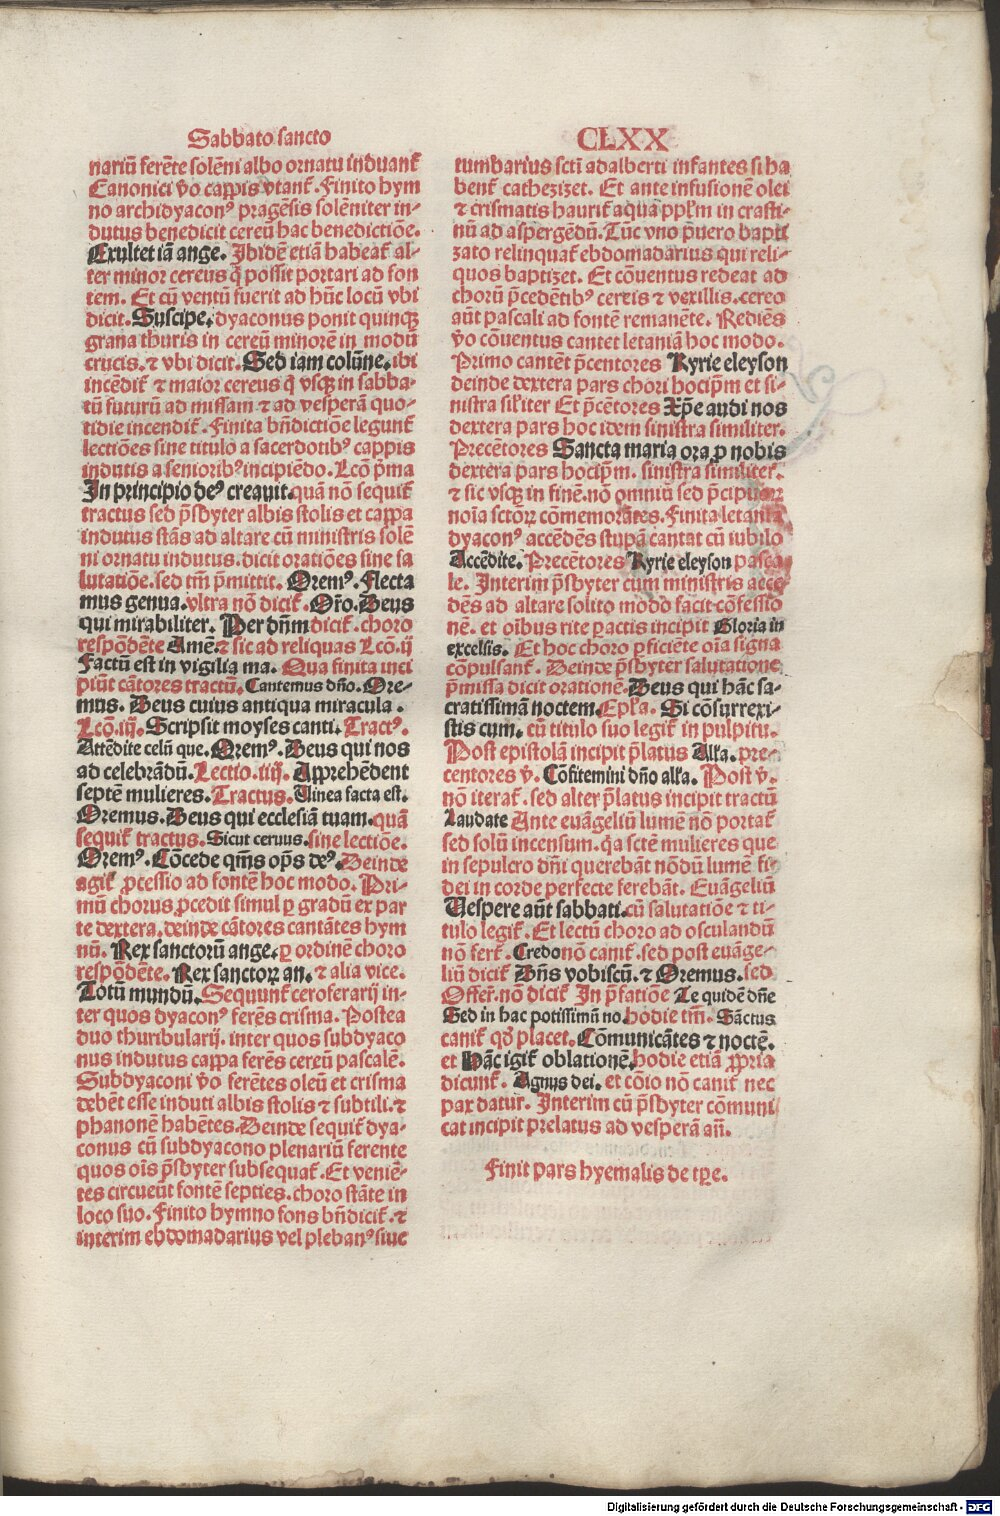 Sabbato sancto
CLXX
nariū ferēte solēni albo ornatu induant᷑
Canonici v̄o cappis vtant᷑. Finito hym
no archidyaconꝰ pragēsis solēniter in-
dutus benedicit cereū hac benedictiōe.
Exultet iā ange. Ibidē etiā habeat᷑ al-
ter minor cereus q̄ possit portari ad fon
tem. Et cū ventū fuerit ad hūc locū vbi
dicit. Suscipe. dyaconus ponit quinqꝫ
grana thuris in cereū minorē in modū
crucis. ⁊ vbi dicit. Sed iam colūne. ibi
incēdit᷑ ⁊ maior cereus q̄ vsqꝫ in sabba-
tū futurū ad missam ⁊ ad vesperā quo-
tidie incendit᷑. Finita bn̄dictiōe legunt᷑
lectiōes sine titulo a sacerdotibꝰ cappis
indutis a senioribꝰ incipiēdo. Lcō p̄ma
In principio deꝰ creauit. quā nō sequit᷑
tractus sed p̄sbyter albis stolis et cappa
indutus stās ad altare cū ministris solē
ni ornatu indutus. dicit oratiōes sine sa
lutatiōe. sed tm̄ p̄mittit. Oremꝰ. Flecta
mus genua. vltra nō dicit᷑. Or̄o. Deus
qui mirabiliter. Per dn̄m dicit᷑. choro
respōdēte Amē. ⁊ sic ad reliquas Lcō. ij
Factū est in vigilia ma. Qua finita inci
piūt cātores tractū. Cantemus dn̄o. Ore-
mus. Deus cuius antiqua miracula.
Lcō. iij. Scripsit moyses canti. Tractꝰ.
Attēdite celū que. Oremꝰ. Deus qui nos
ad celebrādū. Lectio. iiij. Apprehēdent
septē mulieres. Tractus. Uinea facta est.
Oremus. Deus qui ecclesiā tuam. quā
sequit᷑ tractus. Sicut ceruus. sine lectiōe.
Oremꝰ. Cōcede qm̄s op̄s deꝰ. Deinde
agit᷑ ꝓcessio ad fontē hoc modo. Pri-
mū chorus ꝓcedit simul ꝑ gradū ex par
te dextera. deinde cātores cantātes hym
nū. Rex sanctorū ange. ꝑ ordinē choro
respōdēte. Rex sanctoꝝ an. ⁊ alia vice.
Totū mundū. Sequunt᷑ ceroferarij in-
ter quos dyaconꝰ ferēs crisma. Postea
duo thuribularij. inter quos subdyaco
nus indutus cappa ferēs cereū pascalē.
Subdyaconi v̄o ferētes oleū et crisma
debēt esse induti albis stolis ⁊ subtili. ⁊
phanonē habētes. Deinde sequit᷑ dya-
conus cū subdyacono plenariū ferente
quos oīs p̄sbyter subsequat᷑. Et veniē-
tes circueūt fontē septies. choro stāte in
loco suo. Finito hymno fons bn̄dicit᷑. ⁊
interim ebdomadarius vel plebanꝰ siue
tumbarius scti adalberti infantes si ha
bent᷑ cathezizet. Et ante infusionē olei
⁊ crismatis haurit᷑ aqua ppl'm in crasti-
nū ad aspergēdū. Tūc vno puero bapti
zato relinquat᷑ ebdomadarius qui reli-
quos baptizet. Et cōuentus redeat ad
chorū p̄cedētibꝰ cereis ⁊ vexillis. cereo
aūt pascali ad fontē remanēte. Rediēs
v̄o cōuentus cantet letaniā hoc modo.
Primo cantēt p̄centores Kyrie eleyson
deinde dextera pars chori hocip̄m et si-
nistra sil'iter Et p̄cētores Xp̄e audi nos
dextera pars hoc idem sinistra similiter.
Precētores Sancta maria ora ꝓ nobis
dextera pars hocip̄m. sinistra similiter.
⁊ sic vsqꝫ in finē. nō omniū sed p̄cipuoꝝ
noīa sctōꝝ cōmemorātes. Finita letania
dyaconꝰ accēdēs stupā cantat cū iubilo
Accēdite. Precētores Kyrie eleyson pasca
le. Interim p̄sbyter cum ministris acce
dēs ad altare solito modo facit cōfessio
nē. et oībus rite ꝑactis incipit Gloria in
excelsis. Et hoc choro ꝑficiēte oīa signa
cōpulsant᷑. Deinde p̄sbyter salutatione
p̄missa dicit orationē. Deus qui hāc sa-
cratissimā noctem. Epl'a. Si cōsurrexi-
stis cum. cū titulo suo legit᷑ in pulpitu.
Post epistolā incipit p̄latus All'a. pre-
centores v̄. Cōfitemini dn̄o all'a. Post v̄.
nō iterat᷑. sed alter p̄latus incipit tractū
Laudate Ante euāgeliū lumē nō portat᷑
sed solū incensum. q̄a sctē mulieres que
in sepulcro dn̄i querebāt nōdū lumē fi-
dei in corde perfecte ferebāt. Euāgeliū
Vespere aūt sabbati. cū salutatiōe ⁊ ti-
tulo legit᷑. Et lectū choro ad osculandū
nō fert᷑. Credo nō canit᷑. sed post euāge-
liū dicit᷑ Dn̄s vobiscū. ⁊ Oremus. sed
Offert᷑. nō dicit᷑ In p̄fatiōe Te quidē dn̄e
Sed in hac potissimū no. hodie tm̄. Sāctus
canit᷑ qd' placet. Cōmunicātes ⁊ noctē.
et Hāc igit᷑ oblationē. hodie etiā ꝓpria
dicunt᷑. Agnus dei. et cōio nō canit᷑ nec
pax datur. Interim cū p̄sbyter cōmuni
cat incipit prelatus ad vesperā an̄.
Finit pars hyemalis de tp̄e.
Digitalisierung gefördert durch die Deutsche Forschungsgemeinschaft - DFG